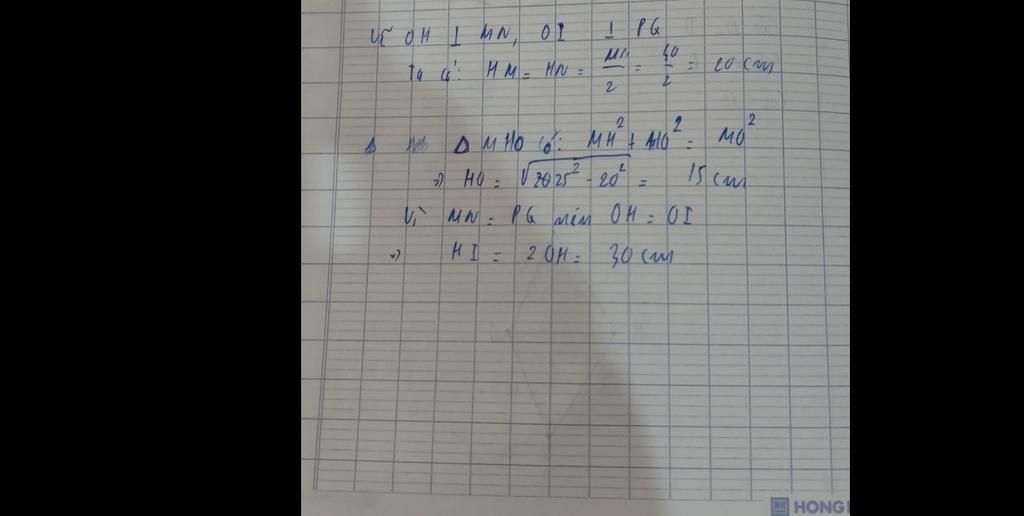 Vẽ OH ⊥ MN, OI ⊥ PQ
Ta có: HM = HN = MN/2 = 40/2 = 20 cm
Δ MHO có: MH² + HO² = MO²
=> HO = √25² - 20² = 15 cm
Vì MN = PQ nên OH = OI
=> HI = 2OH = 30 cm
HONG